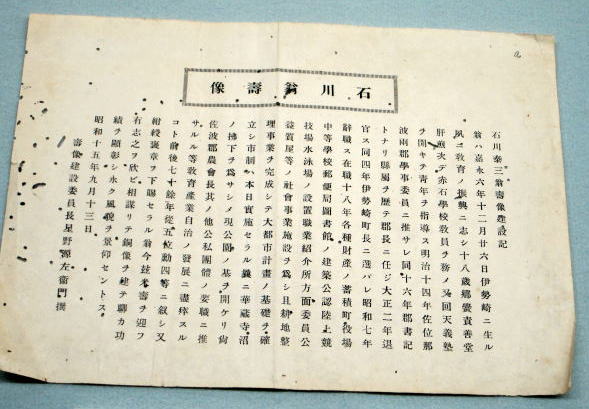 石川翁壽像
石川泰三翁壽像建設記
翁ハ嘉永六年十二月廿六日伊勢崎ニ生ル
夙ニ教育ノ振興ニ志シ十八歳郷黌責善堂
肝煎次デ赤石學校教員ヲ務メ又回天義塾
ヲ開キテ青年ヲ指導ス明治十四年佐位那
波兩郡學事委員ニ推サレ同十六年郡書記
トナリ縣屬ヲ歴テ郡長ニ任ジ大正二年退
官ス同四年伊勢崎町長ニ選バレ昭和七年
辭職ス在職十八年各種財産ノ蓄積町役場
中等學校郵便局圖書館ノ建築公認陸上競
技場水泳場ノ設置職業紹介所方面委員公
益質屋等ノ社會事業施設ヲ爲シ且耕地整
理事業ヲ完成シテ大都市計畫ノ基礎ヲ確
立シ市制ハ本日實施セラル義ニ華蔵寺沼
ノ拂下ヲ爲サシメ現公園ノ基ヲ開ケリ尙
佐波郡農會長其ノ他公私團體ノ要職ニ推
サルル等教育産業自治ノ發展ニ盡瘁スル
コト前後七十餘年從五位勳四等ニ叙シ又
紺綬褒章ヲ下賜セラル翁今玆米壽ヲ迎フ
有志之ヲ欣ビ相謀リテ銅像ヲ建テ聊カ功
績ヲ顯彰シ永ク風貌ヲ景仰セントス
昭和十五年九月十三日
壽像建設委員長星野源左衞門撰